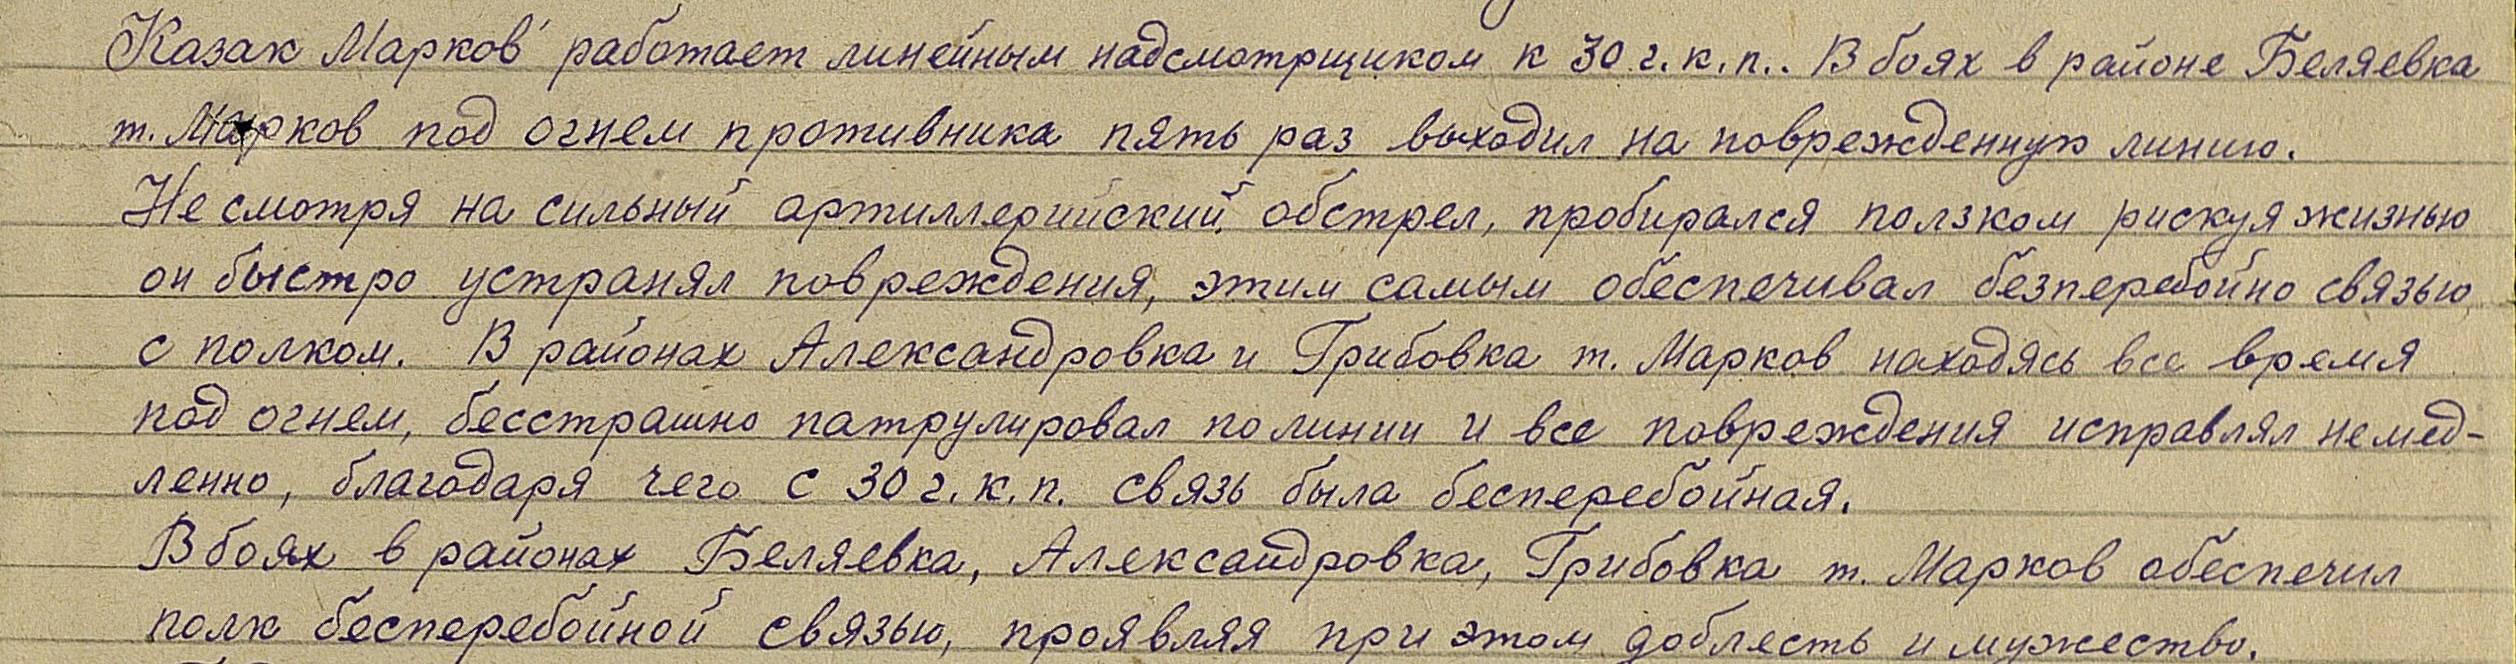 Казак Марков работает линейным надсмотрщиком к 30 г.к.п.. В боях в районе Беляевка
т. Марков под огнем противника пять раз выходил на поврежденную линию.
Не смотря на сильный артиллерийский обстрел, пробирался ползком рискуя жизнью
он быстро устранял повреждения, этим самым обеспечивал безперебойно связью
с полком. В районах Александровка и Грибовка т. Марков находясь все время
под огнем, бесстрашно патрулировал по линии и все повреждения исправлял немед-
ленно, благодаря чего с 30 г.к.п. связь была бесперебойная.
В боях в районах Беляевка, Александровка, Грибовка т. Марков обеспечил
полк бесперебойной связью, проявляя при этом доблесть и мужество.